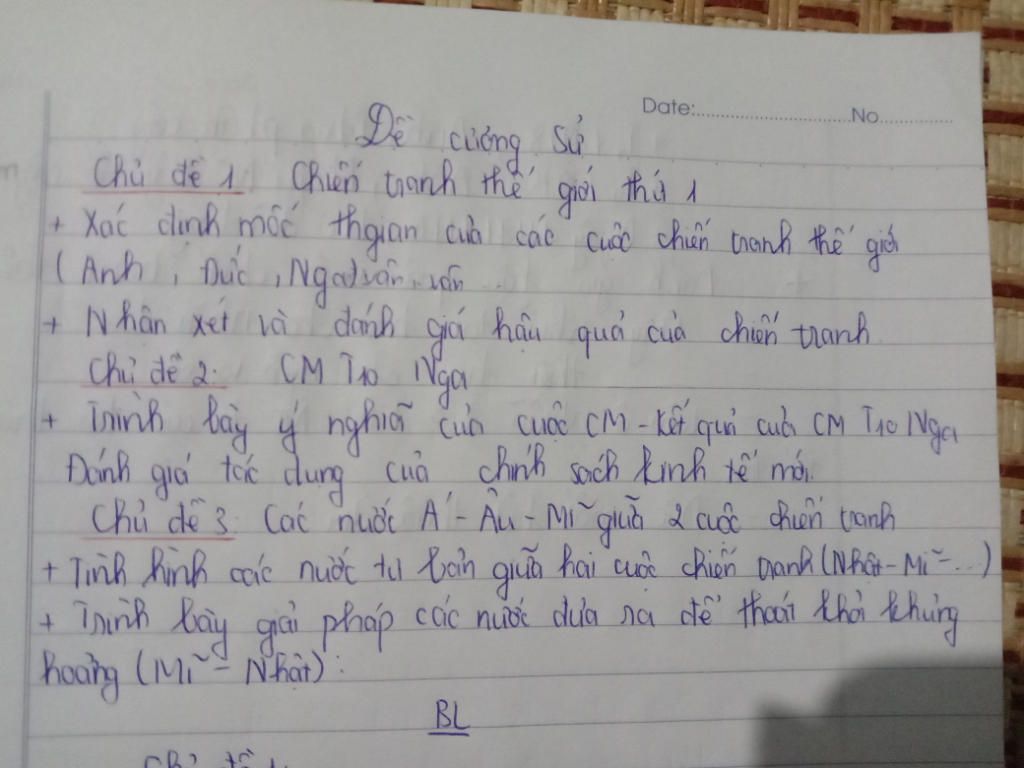 Date:..............................No..............
Đề cương Sử
Chủ đề 1. Chiến tranh thế giới thứ 1
+ Xác định mốc thgian của các cuộc chiến tranh thế giới
( Anh, Đức, Nga) vân vân ..
+ Nhận xét và đánh giá hậu quả của chiến tranh
Chủ đề 2. CM T10 Nga
+ Trình bày ý nghĩa của cuộc CM - kết quả của CM T10 Nga
Đánh giá tác dụng của chính sách kinh tế mới.
Chủ đề 3. Các nước Á - Âu - Mĩ giữa 2 cuộc chiến tranh
+ Tình hình các nước tư bản giữa hai cuộc chiến tranh (Nhật - Mĩ - ...)
+ Trình bày giải pháp các nước đưa ra để thoát khỏi khủng
hoảng (Mĩ - Nhật) :
BL
Chủ đề 1.